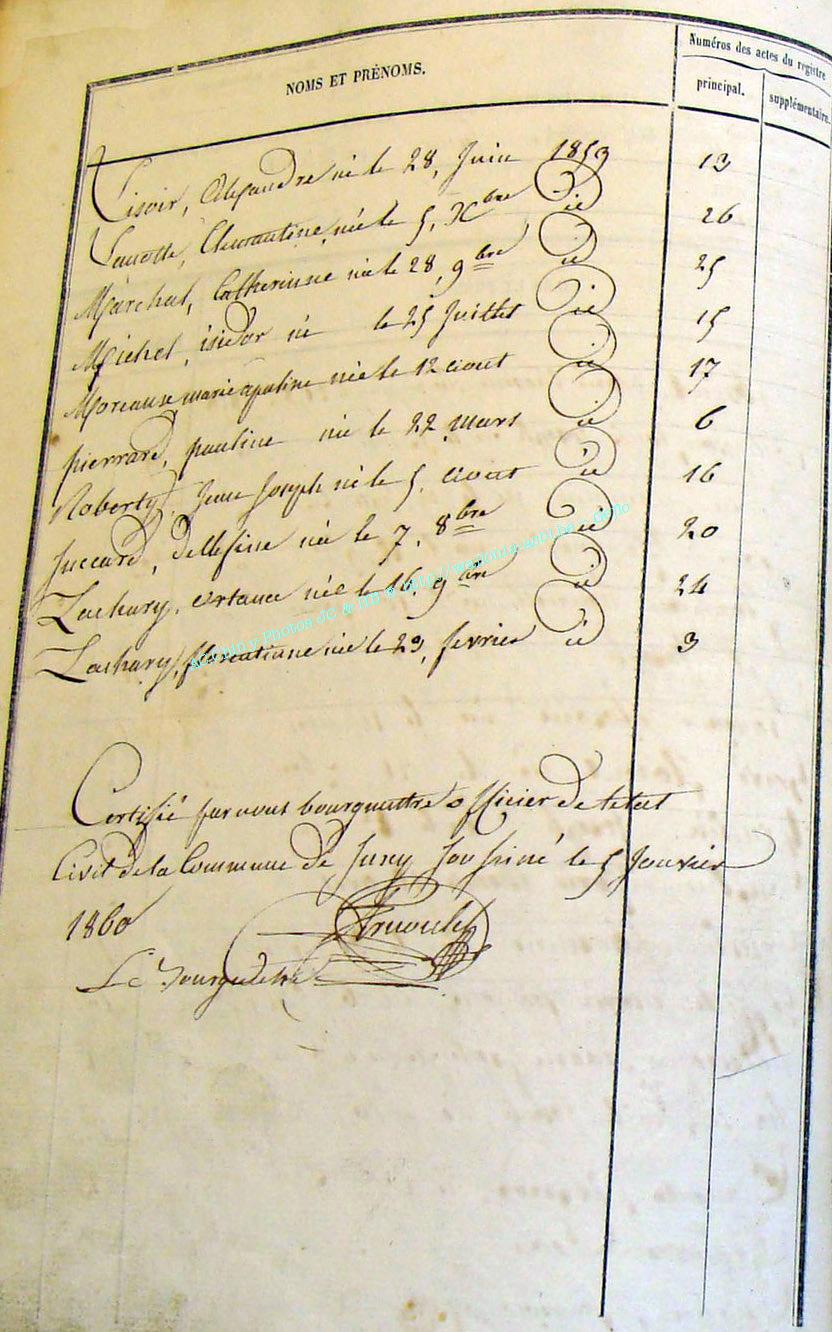 NOMS ET PRÉNOMS.
Numéros des actes du registre
principal.
supplémentaire.
Lisoir, Alexandre né le 28, Juin 1859 13
née le 5, Xbre id 26
Maréchal, Catherinne née le 28, 9bre id 25
Michel, isidor né le 25 Juillet id 15
Moreaux marie apoline née le 12 aout id 17
pierrard, pauline née le 22 mars id 6
Roberty, Jean Joseph né le 5, aout id 16
Juccard, dellfine née le 7, 8bre id 20
Zachary, née le 16, 9bre id 24
Zachary, florentiane née le 29, fevrier id 3
Certifié par nous bourguettre officier de letat
Civil de la Commune de Suny Soussiné le 5 Janvier
1860
Le